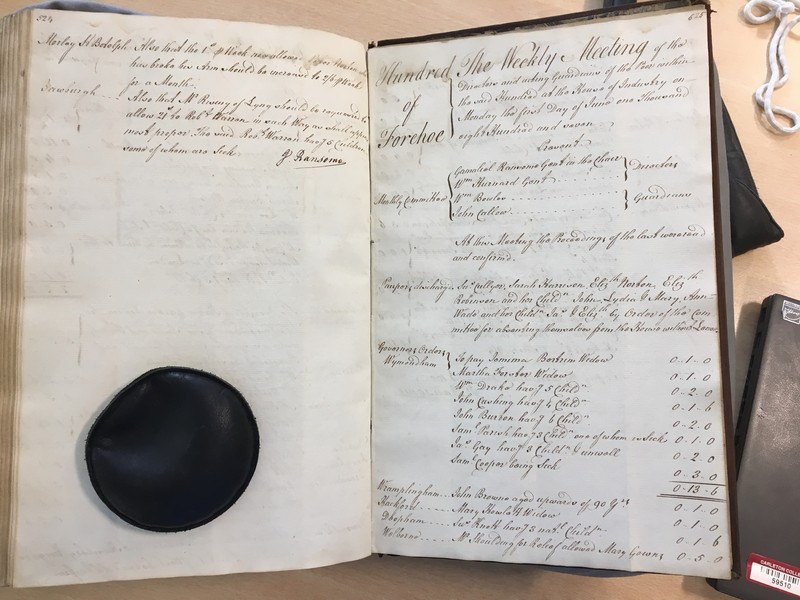 524
Morley St Botolph. Also that the 1s. p Week now allowed Roger
has broke his Arm should be increased to 2/6 p Week
for a Month.
Bawburgh Also that Mr Rising of Lyng should be requested to
allow 21s. to Robt. Warren in such Way as shall appear
most proper. The said Robt. Warren havg. 5 Children
some of whom are Sick.
G Ransome
525
Hundred of Forehoe
The Weekly Meeting of the
Directors and acting Guardians of the Poor within
the said Hundred at the House of Industry on
Monday the first Day of June one Thousand
eight Hundred and seven.
Present
Monthly Committee
Gamaliel Ransome Gent. in the Chair
Wm. Hurnard Gent.
Directors
Wm. Bowles
John Callow
Guardians
At this Meeting the Proceedings of the last were read
and confirmed.
Paupers discharged. Jas. Collyer, Sarah Harrison, Elizth. Norton, Elizth.
Robinson and her Childn. John, Lydia & Mary, Ann
Wade and her Childn. Jas. & Elizth. by Order of the Com
mittee for absenting themselves from the House without Leave.
Governors Orders
Wymondham
To pay Jemima Bartrim Widow 0..1..0
Martha Forster Widow 0..1..0
Wm. Drake havg. 5 Childn. 0..2..0
John Cushing havg. 4 Childn. 0..1..6
John Burton havg. 6 Childn. 0..2..0
Saml. Parish havg. 3 Childn. one of whom is Sick 0..1..0
Jas. Gay havg. 3 Childn. & unwell 0..2..0
Saml. Cooper being Sick 0..3..0
0..13..6
Wramplingham John Browne aged upwards of 90 Yrs. 0..1..0
Hackford Mary Howlett Widow 0..1..0
Deopham Sus. Knott havg. 3 natl. Childn. 0..1..6
Welborne Mr Skoulding for Relief allowed Mary Gowing 0..5..0
CARLETON COLL
59510